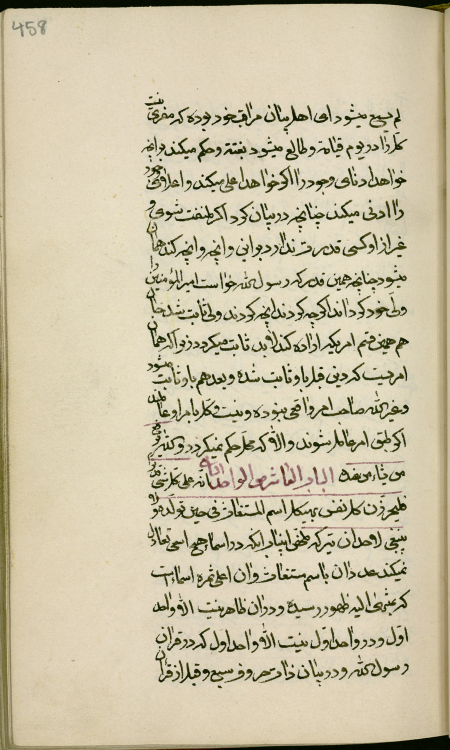 458
لم یسمع میشود ای اهل بیان مراقب خود بوده که مفری نیست
کل را در یوم قیامة و طالع میشود بغتة و حکم میکند بر آنچه
خواهد ادنای وجود را اگر خواهد اعلی میکند و اعلای وجود
را ادنی میکند چنانچه در بیان کرد اگر ملتفت شوی و
غیر از او کسی قدرت ندارد بر این و آنچه کند همان
میشود چنانچه همین قدر که رسول الله خواست امیر المؤمنین را
ولی خود گرداند اگر چه کردند آنچه کردند ولی ثابت شد همان
هم همین قسم امریکه اراده کند لابد ثابت میگردد زیرا که همان
امریست که دین قبل باو ثابت شده و بعد هم باو ثابت میشود
و غیر الله صاحب امر واقعی نبوده و نیست و کل بامر او عاملند
اگر مطابق امر عامل شوند والا که محل حکم نمیگردد و کذلک
من یشاء من عباده الباب العاشر من الواحد علی کل شئ
کل نفس اسم المستغاث فی حین تولد
ملخص این باب آنکه در اسماء هیچ اسمی تعادل
نمیکند عدد آن باسم مستغاث و آن اعلی ثمره اسماء است
که بمنتهی الیه ظهور رسیده و در آن ظاهر نیست الا واحد
اول و در واحد اول نیست الا واحد اول که در قرآن
رسول الله و در بیان ذات حروف سبع و قبل از قرآن